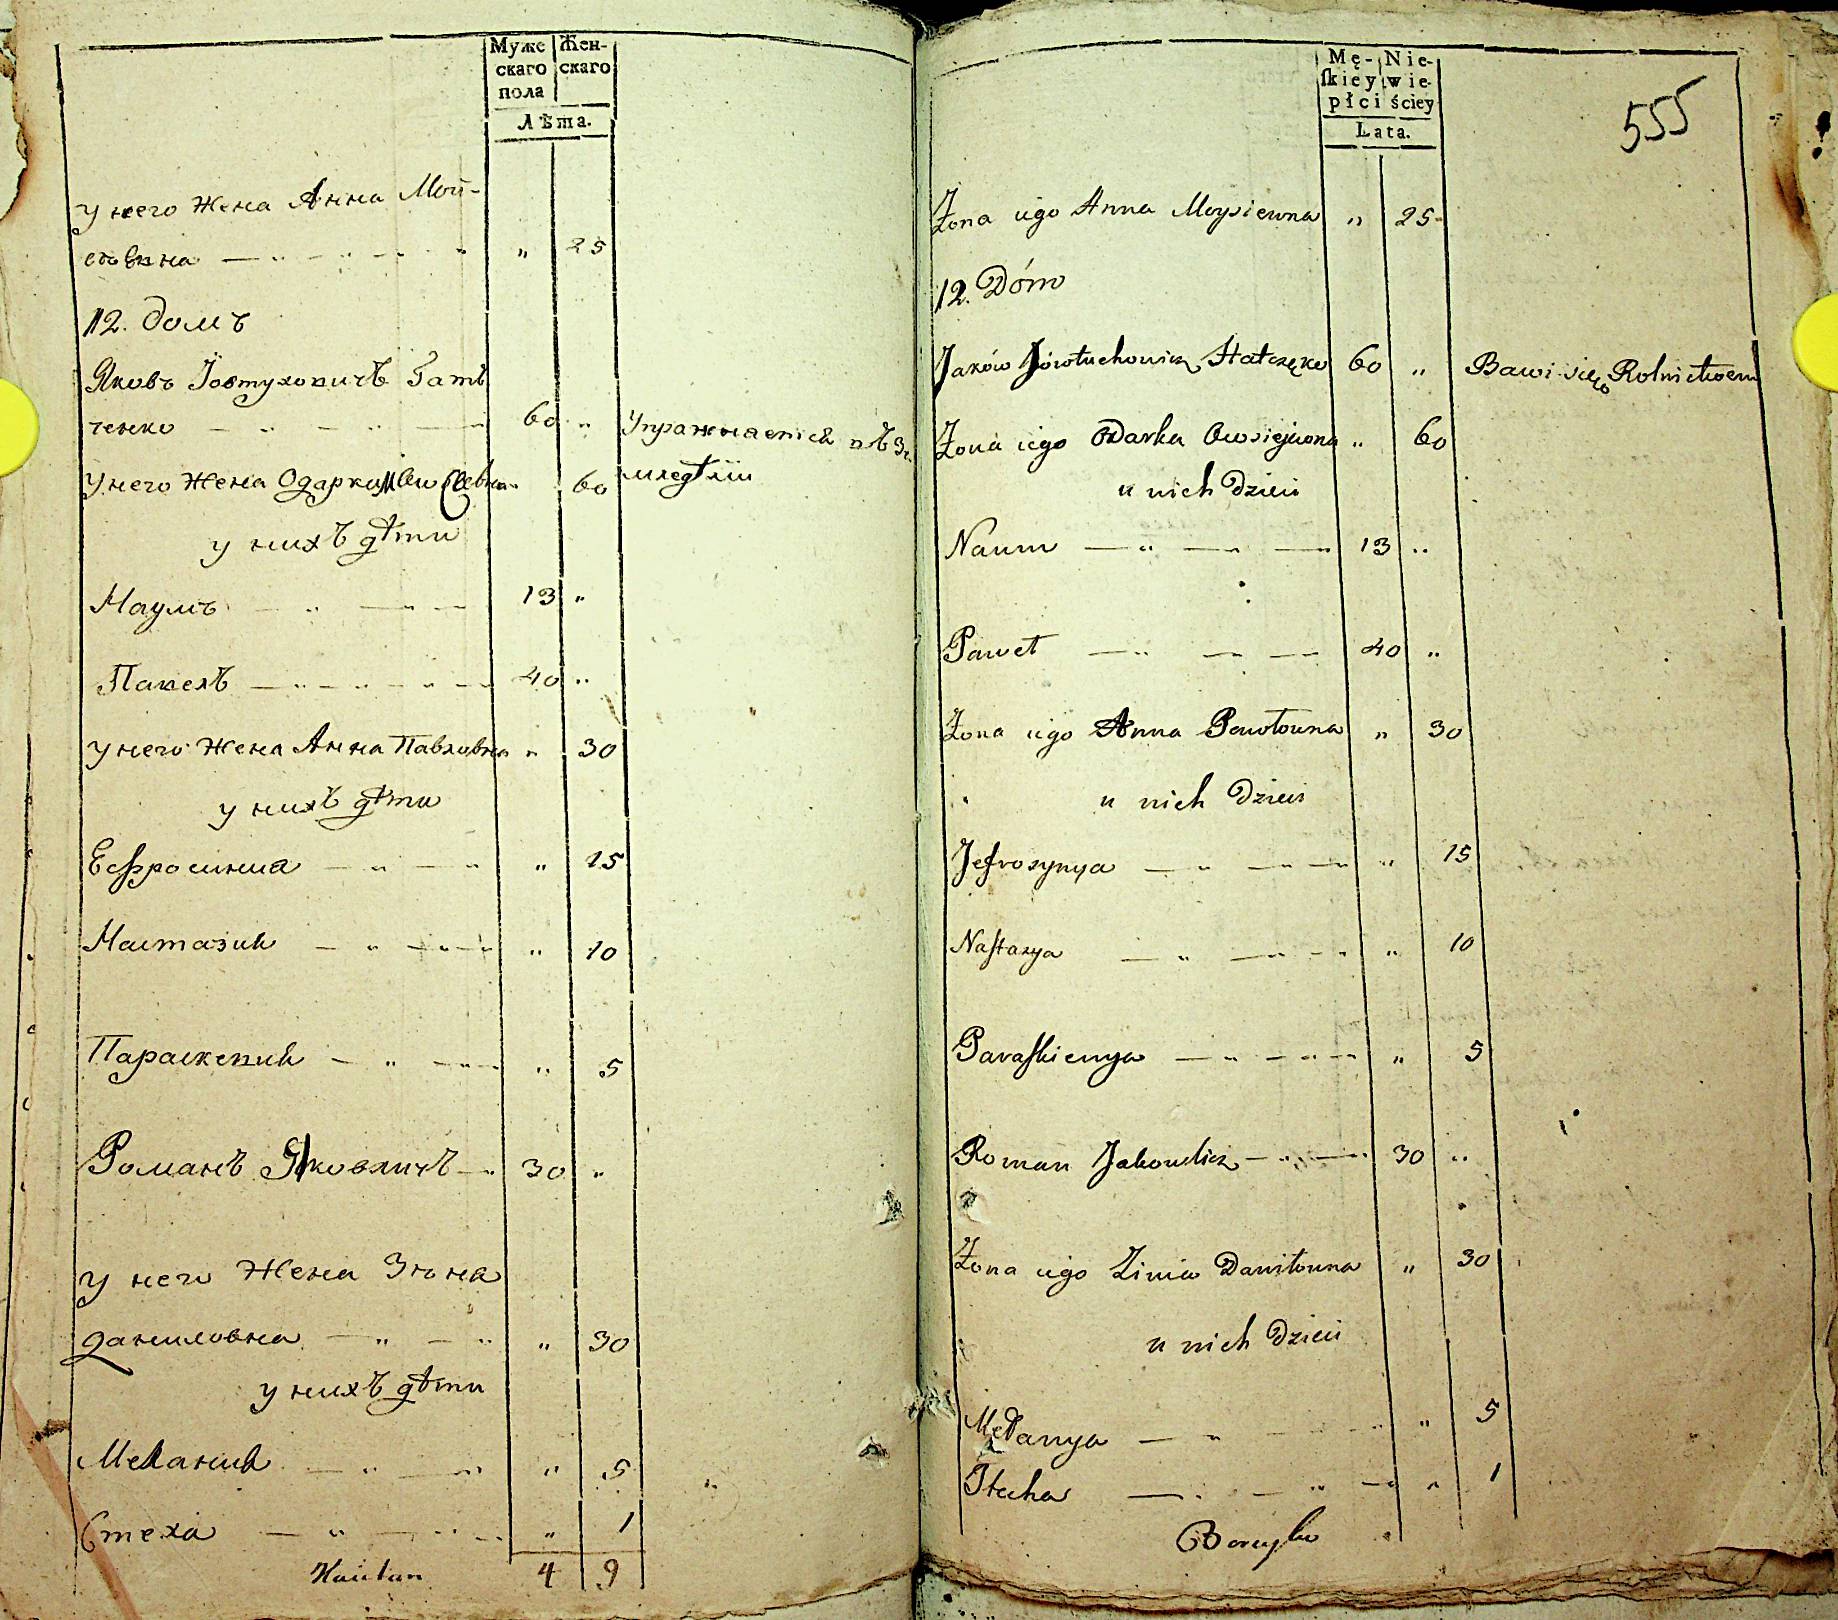 Муже
скаго
пола
Жен-
скаго
Лѣта.
у него Жена Анна Мой-
сѣевна — " — " — " — " " 25
12. Домъ
Яковъ Іовтуховичъ Гать
ченко — " — " — 60 "
Упражняется въ Зе
мледѣліи
у него Жена Одарка Овсѣевна " 60
у нихъ дѣти
Наумъ — " — " — 13 "
Павелъ — " — " — " — 40 "
у него Жена Анна Павловна " 30
у нихъ дѣти
Ефросиния — " — " " 15
Настазия — " — " — " 10
Параскевия — " — " — " 5
Романъ Яковличъ — " 30 "
у него Жена Зѣна
Даниловна — " — " " 30
у нихъ дѣти
Мелания — " — " " 5
Стеха — " — " — " 1
4 9
Mę-
skiey
płci
Nie-
wie-
ściey
Lata.
555
Żona iego Anna Moysiewna " 25
12. Dóm
Jaków Jówtuchowicz Hatczęko 60 " Bawi się Rolnictwem
Żona iego Odarka Owsiejowna " 60
u nich Dzieci
Naum — " — " — 13 "
Paweł — " — " — 40 "
Żona iego Anna Pawłowna " 30
u nich Dzieci
Jefrozynya — " — " — " 15
Nastazya — " — " — " 10
Paraskiewya — " — " — " 5
Roman Jakowlicz — " — 30 "
Żona iego Zinia Daniłowna " 30
u nich Dzieci
Mełanya — " — " 5
Stecha — " — " — " " 1